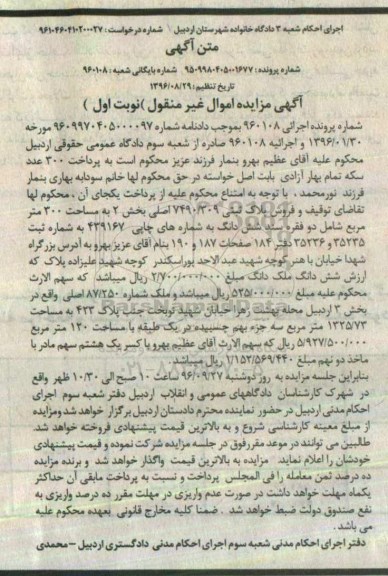 اجرای احکام شعبه ۳ دادگاه خانواده شهرستان اردبیل \ شماره درخواست: ۹۶۱۰۴۶۰۴۱۰۲۰۰۰۲۷
متن آگهی
شماره پرونده: ۹۵۰۹۹۸۰۴۰۵۰۰۱۶۷۷ شماره بایگانی شعبه: ۹۶۰۱۰۸
تاریخ تنظیم: ۱۳۹۶/۰۸/۲۹
آگهی مزایده اموال غیر منقول )نوبت اول )
شماره پرونده اجرائی ۹۶۰۱۰۸ بموجب دادنامه شماره ۹۶۰۹۹۷۰۴۰۵۰۰۰۰۹۷ مورخه
۱۳۹۶/۰۱/۳۰ و اجرائیه ۹۶۰۱۰۸ صادره از شعبه سوم دادگاه عمومی حقوقی اردبیل
محکوم علیه آقای عظیم بهرو بنمار فرزند عزیز محکوم است به پرداخت ۳۰۰ عدد
سکه تمام بهار آزادی بابت اصل خواسته در حق محکوم لها خانم سودابه بهاری بنمار
فرزند نورمحمد ، با توجه به امتناع محکوم علیه از پرداخت یکجای آن ، محکوم لها
تقاضای توقیف و فروش پلاک ثبتی ۷۴۹۰/۳۰۹ اصلی بخش ۲ به مساحت ۳۰۰ متر
مربع شامل دو فقره سند شش دانگ به شماره های چاپی ۴۳۹۱۶۷ به شماره ثبت
۳۵۲۳۵ و ۳۵۲۳۶ دفتر ۱۸۴ صفحات ۱۸۷ و ۱۹۰ بنام آقای عزیز بهرو به آدرس بزرگراه
شهدا خیابان با هنر کوچه شهید عبد الاحد پوراسکندر کوچه شهید علیزاده پلاک که
ارزش شش دانگ ملک دانگ مبلغ ۲/۷۰۰/۰۰۰/۰۰۰ ریال میباشد که سهم الارث
محکوم علیه مبلغ ۵۲۵/۰۰۰/۰۰۰ ریال میباشد و ملک شماره ۸۷/۲۵۰ اصلی واقع در
بخش ۳ اردبیل محله بهشت زهرا خیابان شهید نوبخت جنب پلاک ۴۳۳ به مساحت
۱۳۲۵/۷۳ متر مربع سه جزء بهم چسبیده در یک طبقه با مساحت ۱۲۰ متر مربع
۵/۹۲۷/۵۰۰/۰۰۰ ریال که سهم الارث آقای عظیم بهرو با کسر یک هشتم سهم مادر با
ماخذ دو نهم مبلغ ۱/۱۵۲/۵۶۹/۴۴۰ ریال میباشد
بنابراین جلسه مزایده به روز دوشنبه ۹۶/۰۹/۲۷ ساعت ۱۰ صبح الی ۱۰/۳۰ ظهر واقع
در شهرک کارشناسان دادگاههای عمومی و انقلاب اردبیل دفتر شعبه سوم اجرای
احکام مدنی اردبیل در حضور نماینده محترم دادستان اردبیل برگزار خواهد شد و مزایده
از مبلغ معینه کارشناسی شروع و به بالاترین قیمت پیشنهادی فروخته خواهد شد.
طالبین می توانند در موعد مقرر فوق در جلسه مزایده شرکت نموده و قیمت پیشنهادی
خودشان را اعلام نمایند مزایده به بالاترین قیمت واگذار خواهد شد و برنده مزایده
ده درصد ثمن معامله را فی المجلس پرداخت و نسبت به پرداخت مابقی آن حداکثر
یکماه مهلت خواهد داشت در صورت عدم واریزی در مهلت مقرر ده درصد واریزی به
نفع صندوق دولت ضبط خواهد شد . ضمنا کلیه مخارج قانونی بعهده محکوم علیه
می باشد .
دفتر اجرای احکام مدنی شعبه سوم اجرای احکام مدنی دادگستری اردبیل – محمدی